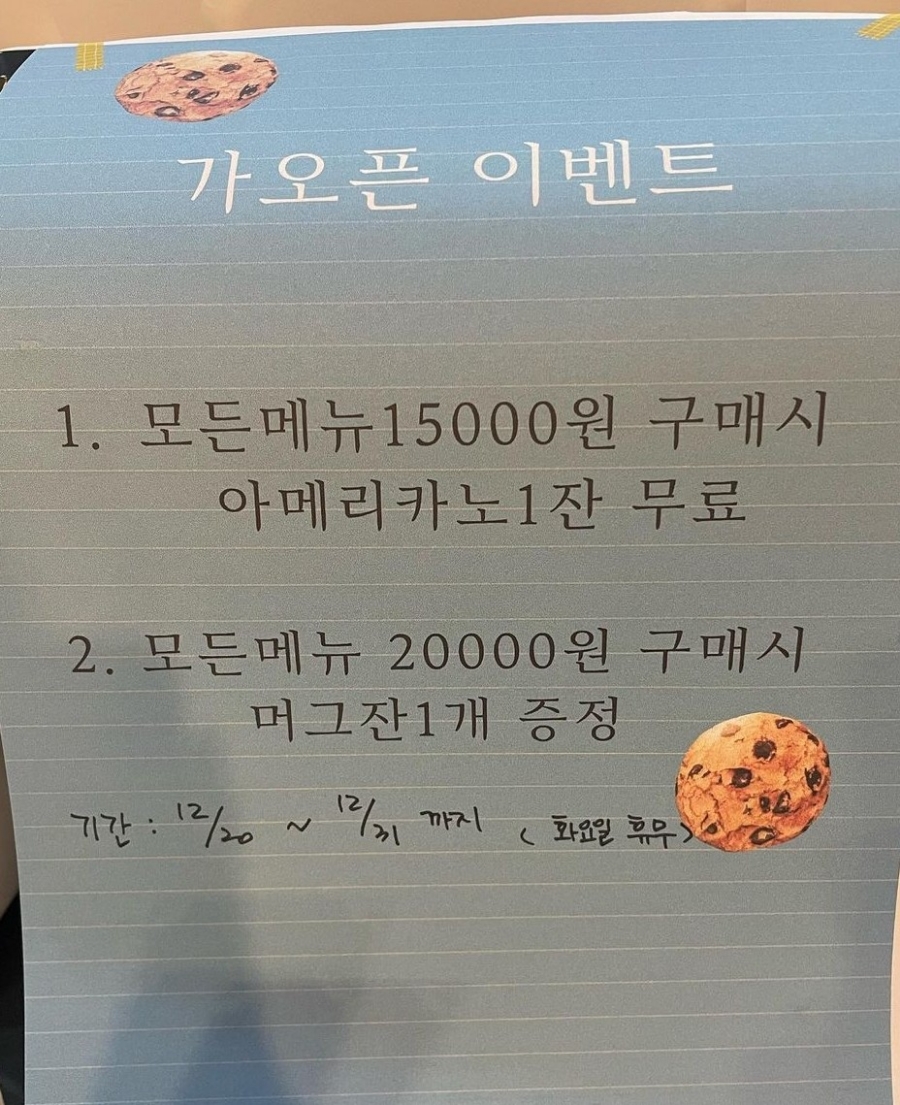 가오픈 이벤트
1. 모든메뉴15000원 구매시
아메리카노1잔 무료
2. 모든메뉴 20000원 구매시
머그잔1개 증정
기간 : 12/20 ~ 12/31 까지 ( 화요일 휴무)